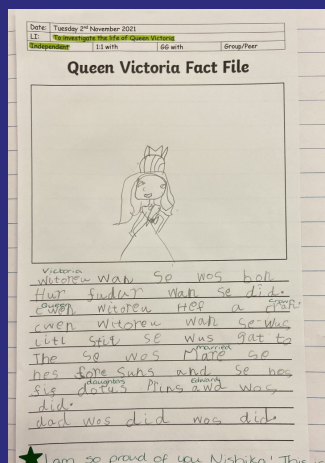 Date: Tuesday 2nd November 2021
LI: To investigate the life of Queen Victoria
Independent 1:1 with GG with Group/Peer
Queen Victoria Fact File
Victoria
witoreu wan so wos bon
Hur fudur wan se did.
Queen crown
cwen witoreu Hef a cran.
cwen witoreu wan se wus
litl stit se wus gat to
married
The so wos Mare se
hes fore suns and se hos
daughters Edward
fiv dotus Prins awd wos
did.
dad wos did wos did.
I am so proud of you Nishika! This is